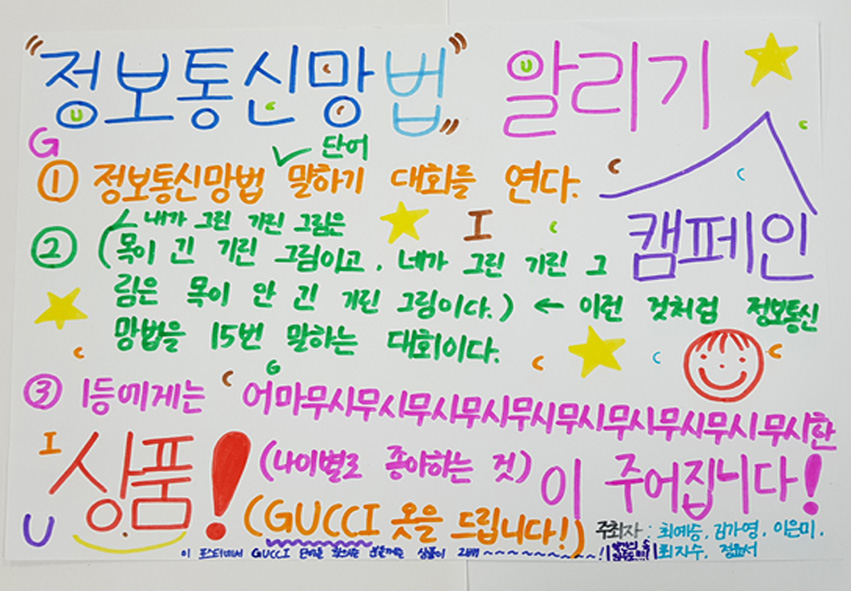 "정보통신망법" 알리기
캠페인
① 정보통신망법 단어 말하기 대회를 연다.
② (내가 그린 기린 그림은 목이 긴 기린 그림이고, 네가 그린 기린 그
림은 목이 안 긴 기린 그림이다.) ← 이런 것처럼 정보통신
망법을 15번 말하는 대회이다.
③ 1등에게는 어마무시무시무시무시무시무시무시무시무시무시무시한
상품! (나이별로 좋아하는 것)이 주어집니다!
(GUCCI 옷을 드립니다!)
주최자 : 최예승, 김가영, 이은미,
최지수, 정윤서
이 포스터에서 GUCCI